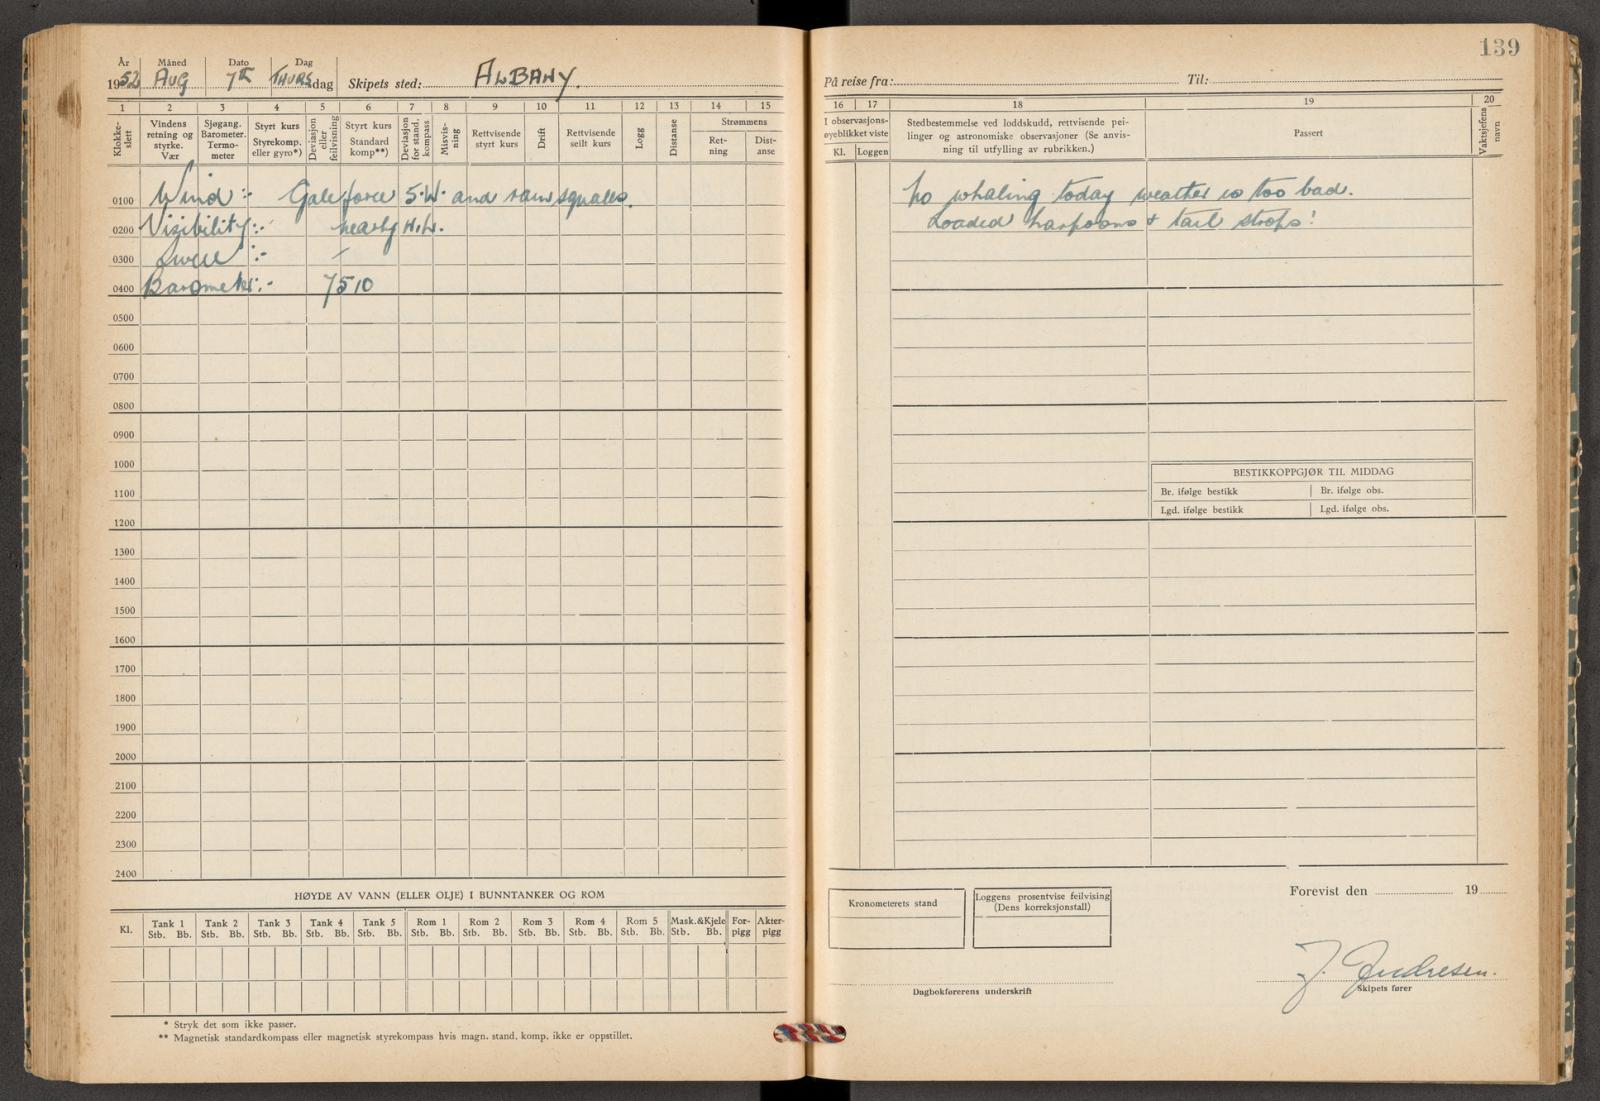 139
År Måned Dato Dag
1952 AUG 7th THURSdag Skipets sted: ALBANY.
På reise fra: Til:
1 2 3 4 5 6 7 8 9 10 11 12 13 14 15
16 17 18 19 20
Klokke-slett
Vindens retning og styrke. Vær
Sjøgang. Barometer. Termo-meter
Styrt kurs Styrekomp. eller gyro*)
Deviasjon eller feilvisning
Styrt kurs Standard komp**)
Deviasjon for stand. kompass
Misvis-ning
Rettvisende styrt kurs
Drift
Rettvisende seilt kurs
Logg
Distanse
Strømmens
Ret-ning
Dist-anse
I observasjons-øyeblikket viste
Kl. Loggen
Stedbestemmelse ved loddskudd, rettvisende pei-
linger og astronomiske observasjoner (Se anvis-
ning til utfylling av rubrikken.)
Passert
Vaktsjefens navn
0100 Wind :- Gale force S.W. and rain squales.
0200 Visibility :- nearly H.W.
0300 Swell :- /
0400 Barometer :- 7510
0500
0600
0700
0800
0900
1000
1100
1200
1300
1400
1500
1600
1700
1800
1900
2000
2100
2200
2300
2400
No whaling today weather is too bad.
Loaded harpoons & tail strops!
BESTIKKOPPGJØR TIL MIDDAG
Br. ifølge bestikk Br. ifølge obs.
Lgd. ifølge bestikk Lgd. ifølge obs.
HØYDE AV VANN (ELLER OLJE) I BUNNTANKER OG ROM
Kl. Tank 1 Tank 2 Tank 3 Tank 4 Tank 5 Rom 1 Rom 2 Rom 3 Rom 4 Rom 5 Mask.&Kjele For-pigg Akter-pigg
Stb. Bb. Stb. Bb. Stb. Bb. Stb. Bb. Stb. Bb. Stb. Bb. Stb. Bb. Stb. Bb. Stb. Bb. Stb. Bb. Stb. Bb.
* Stryk det som ikke passer.
** Magnetisk standardkompass eller magnetisk styrekompass hvis magn. stand. komp. ikke er oppstillet.
Kronometerets stand
Loggens prosentvise feilvising
(Dens korreksjonstall)
Forevist den 19
J. Andresen.
Dagbokførerens underskrift
Skipets fører